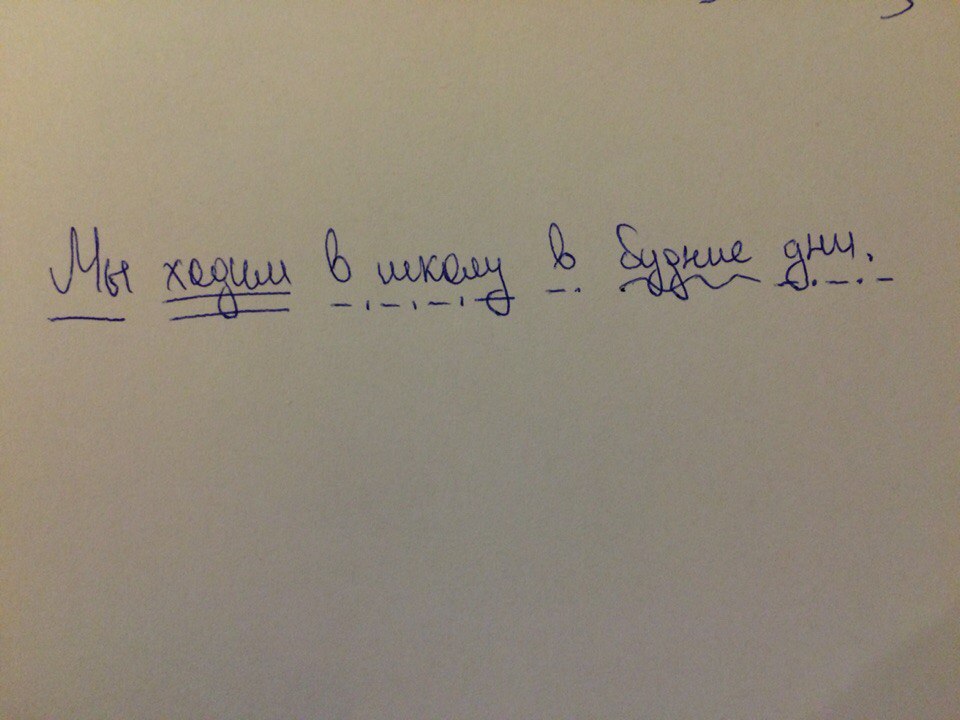 Мы ходим в школу в будние дни.